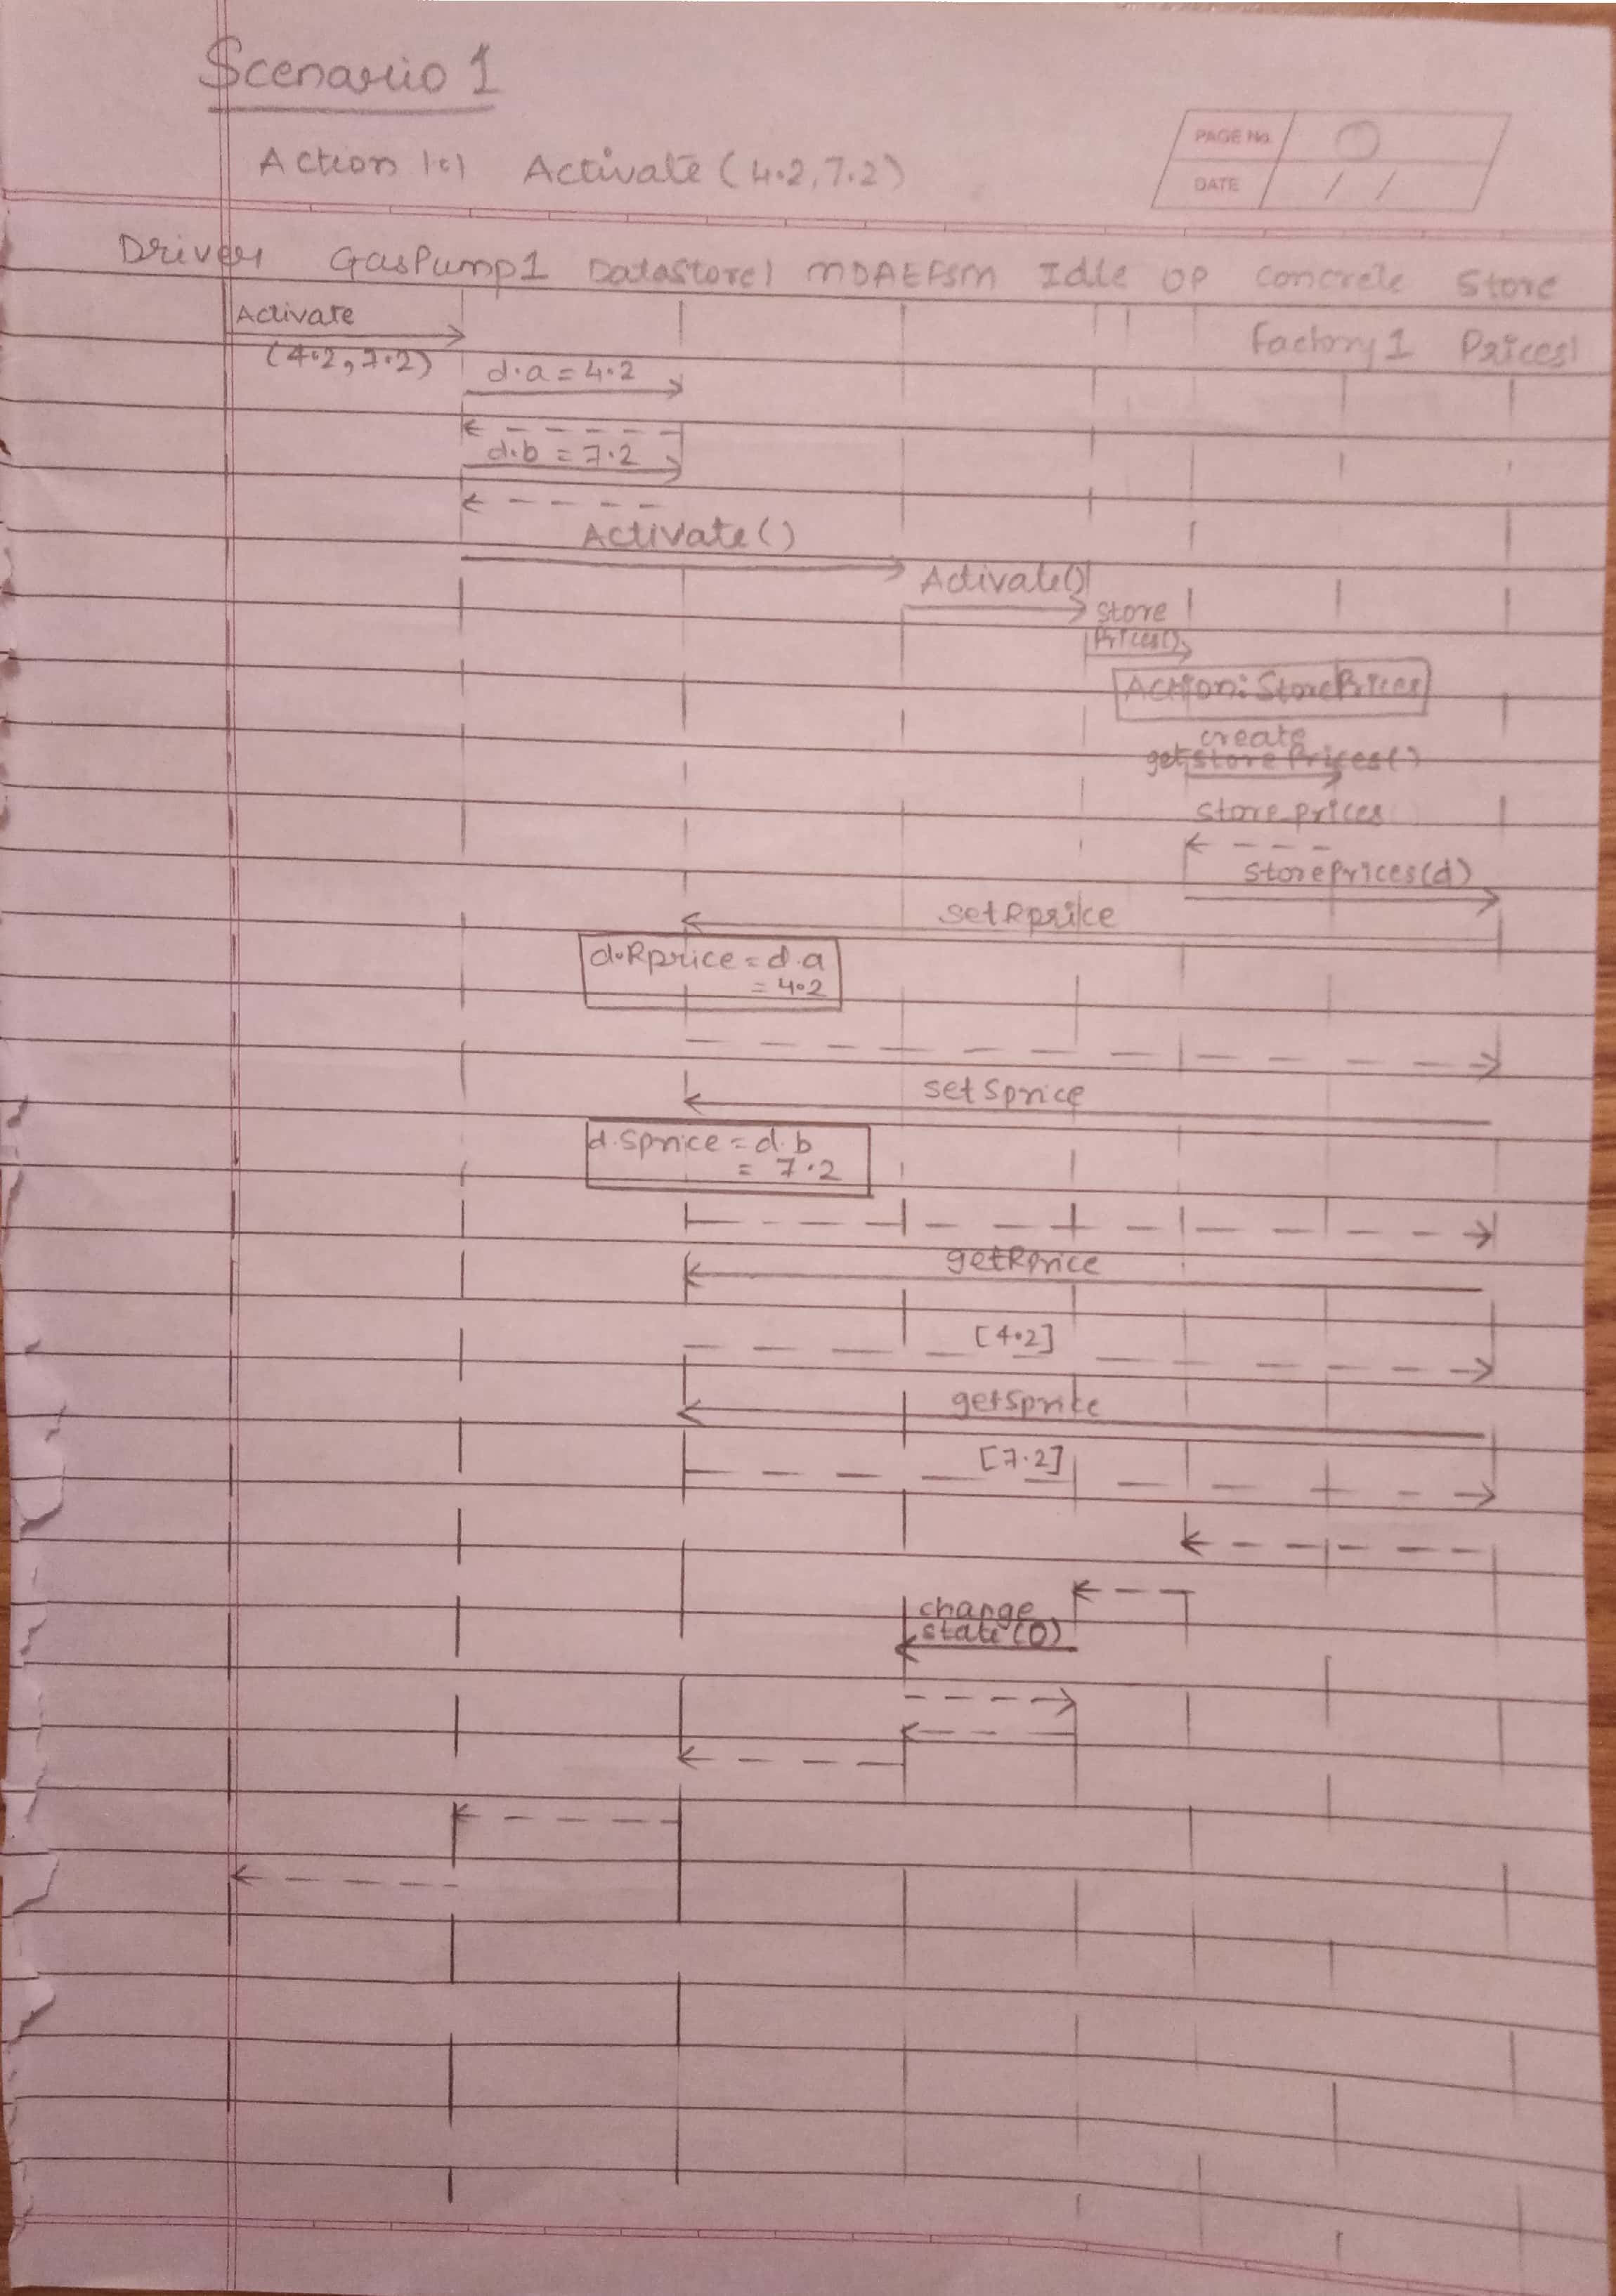 Scenario 1
PAGE No. 1
Action 1.1 Activate (4.2, 7.2)
DATE / /
Driver GasPump1 DataStore1 MDAEFSM Idle OP Concrete Store
Factory1 Prices1
Activate
(4.2, 7.2)
d.a = 4.2
d.b = 7.2
Activate()
Activate()
Store
Prices()
Action: StorePrices
create
get StorePrices()
Store prices
StorePrices(d)
setRprice
d.Rprice = d.a
= 4.2
setSprice
d.Sprice = d.b
= 7.2
getRprice
[4.2]
getSprice
[7.2]
change
state (0)